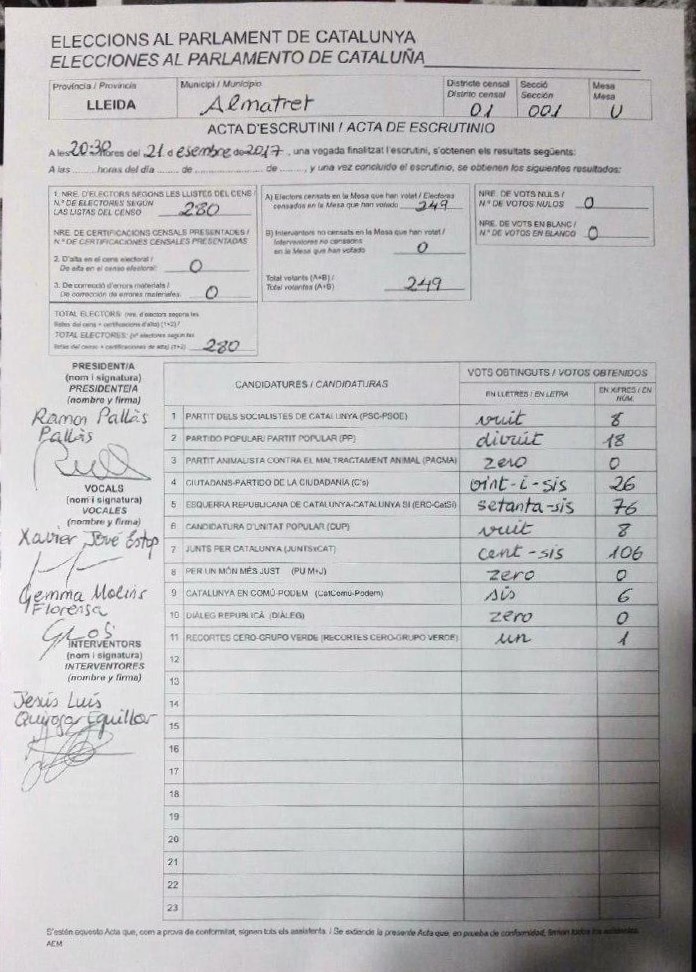 ELECCIONS AL PARLAMENT DE CATALUNYA
ELECCIONES AL PARLAMENTO DE CATALUÑA
Província / Provincia
LLEIDA
Municipi / Municipio
Almatret
Districte censal
Distrito censal
01
Secció
Sección
001
Mesa
Mesa
U
ACTA D'ESCRUTINI / ACTA DE ESCRUTINIO
A les 20:30 hores del 21 d esembre de 2017, una vegada finalitzat l'escrutini, s'obtenen els resultats següents:
A las ........ horas del día ........ de ........................ de ........, y una vez concluido el escrutinio, se obtienen los siguientes resultados:
1. NRE. D'ELECTORS SEGONS LES LLISTES DEL CENS /
N.º DE ELECTORES SEGÚN
LAS LISTAS DEL CENSO 280
NRE. DE CERTIFICACIONS CENSALS PRESENTADES /
N.º DE CERTIFICACIONES CENSALES PRESENTADAS
2. D'alta en el cens electoral /
De alta en el censo electoral: 0
3. De correcció d'errors materials /
De corrección de errores materiales: 0
TOTAL ELECTORS: (nre. d'electors segons les
llistes del cens + certificacions d'alta) (1+2) /
TOTAL ELECTORES: (nº electores según las
listas del censo + certificaciones de alta) (1+2) 280
A) Electors censats en la Mesa que han votat / Electores
censados en la Mesa que han votado 249
B) Interventors no censats en la Mesa que han votat /
Interventores no censados
en la Mesa que han votado 0
Total votants (A+B) /
Total votantes (A+B) 249
NRE. DE VOTS NULS /
N.º DE VOTOS NULOS 0
NRE. DE VOTS EN BLANC /
N.º DE VOTOS EN BLANCO 0
PRESIDENT/A
(nom i signatura)
PRESIDENTE/A
(nombre y firma)
Ramon Pallàs
Pallàs
VOCALS
(nom i signatura)
VOCALES
(nombre y firma)
Xavier Jové Estop
Gemma Molins
Florensa
INTERVENTORS
(nom i signatura)
INTERVENTORES
(nombre y firma)
Jesús Luís
CANDIDATURES / CANDIDATURAS
VOTS OBTINGUTS / VOTOS OBTENIDOS
EN LLETRES / EN LETRA
EN XIFRES / EN NÚM.
1 PARTIT DELS SOCIALISTES DE CATALUNYA (PSC-PSOE) vuit 8
2 PARTIDO POPULAR/ PARTIT POPULAR (PP) divuit 18
3 PARTIT ANIMALISTA CONTRA EL MALTRACTAMENT ANIMAL (PACMA) zero 0
4 CIUTADANS-PARTIDO DE LA CIUDADANÍA (C's) vint-i-sis 26
5 ESQUERRA REPUBLICANA DE CATALUNYA-CATALUNYA SÍ (ERC-CatSí) setanta-sis 76
6 CANDIDATURA D'UNITAT POPULAR (CUP) vuit 8
7 JUNTS PER CATALUNYA (JUNTSxCAT) cent-sis 106
8 PER UN MÓN MÉS JUST (PUM+J) zero 0
9 CATALUNYA EN COMÚ-PODEM (CatComú-Podem) sis 6
10 DIÀLEG REPUBLICÀ (DIÀLEG) zero 0
11 RECORTES CERO-GRUPO VERDE (RECORTES CERO-GRUPO VERDE) un 1
12
13
14
15
16
17
18
19
20
21
22
23
S'estén aquesta Acta que, com a prova de conformitat, signen tots els assistents. / Se extiende la presente Acta que, en prueba de conformidad, firman todos los asistentes.
AEM